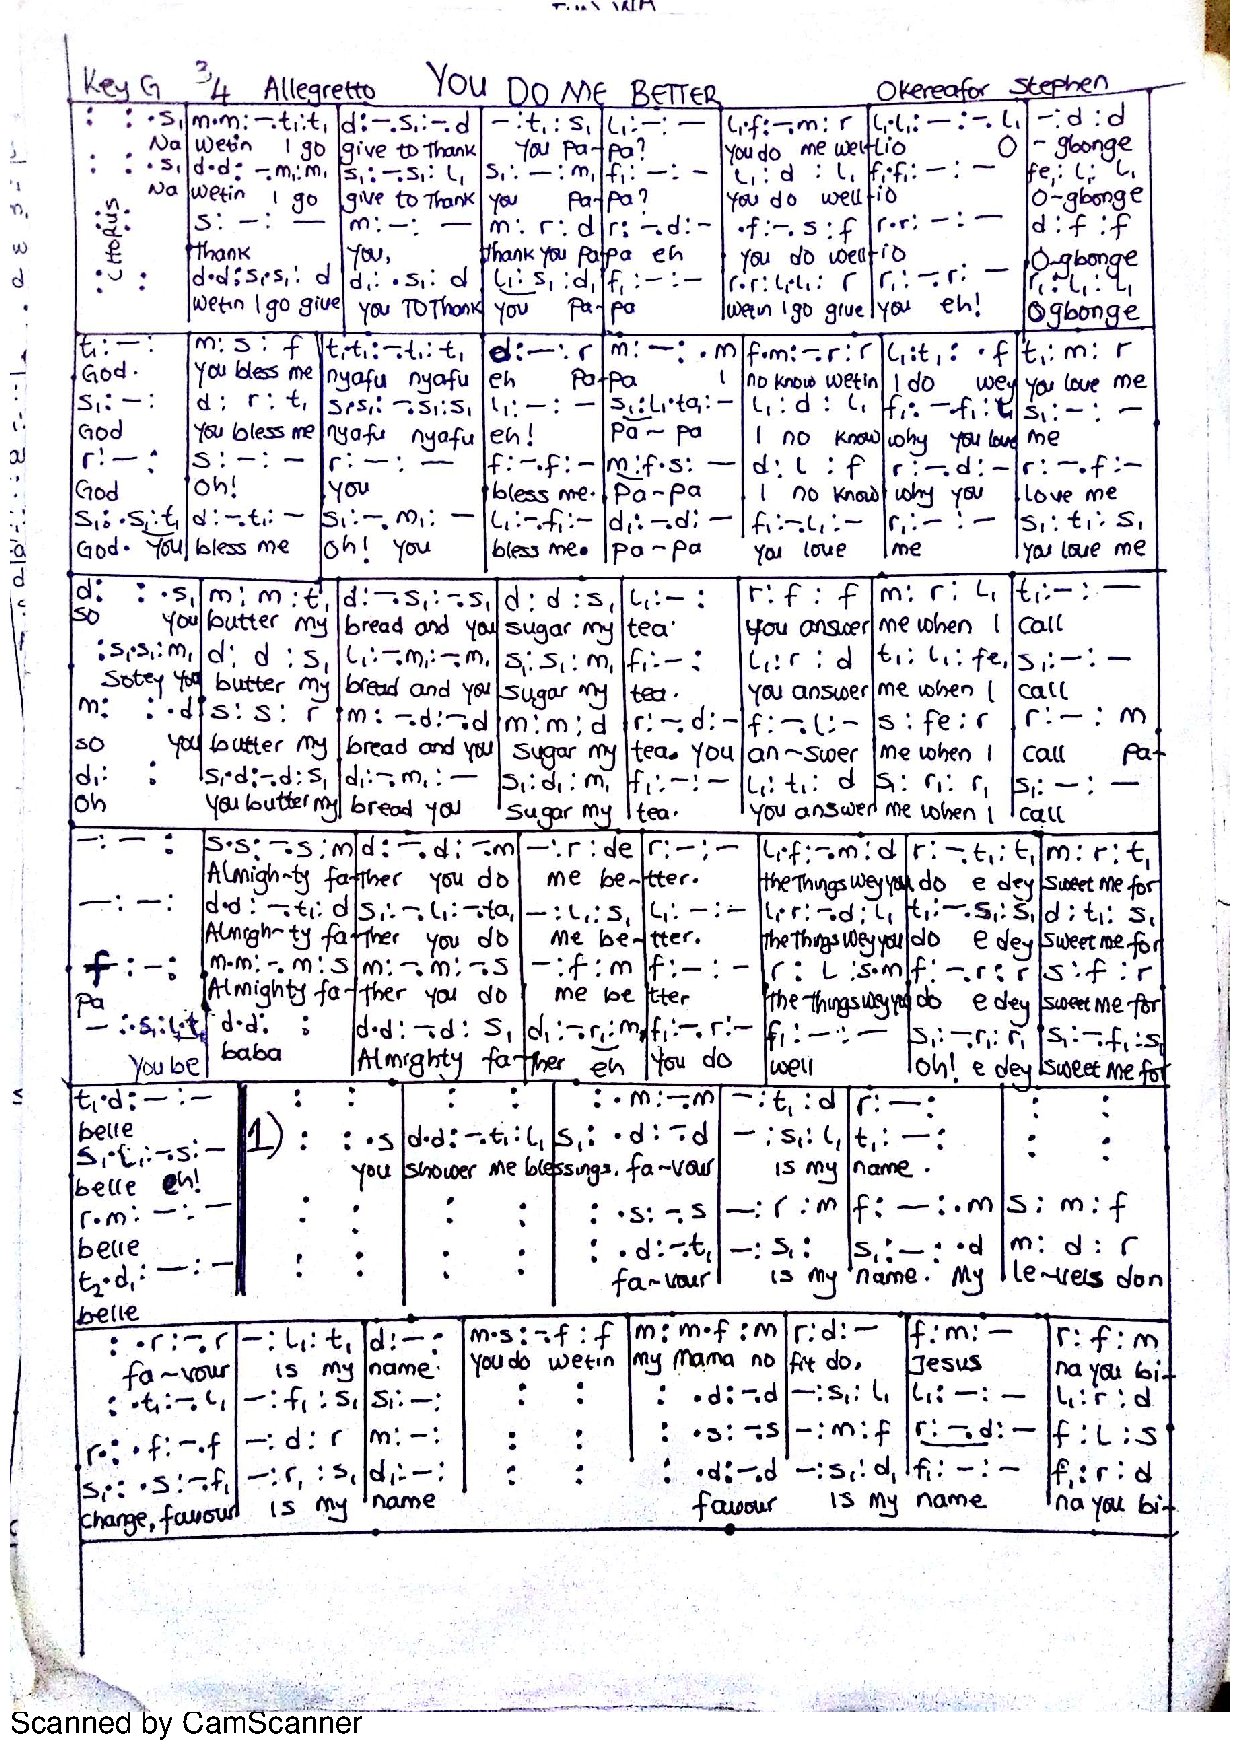 Key G 3/4 Allegretto YOU DO ME BETTER Okereafor Stephen
CHORUS
: : .s₁ m.m:-.t₁:t₁ d:-.s₁:-.d -:t₁:s₁ l₁:-:- l₁.f:-.m:r l₁.l₁:-:-.l₁ -:d:d
Na wetin I go give to Thank You Pa-Pa? You do me well-io O - gbonge
: : .s₁ d.d:-.m₁:m₁ s₁:-.s₁:l₁ s₁:-:m₁ f₁:-:- l₁:d:l₁ f₁.f₁:-:- fe₁:l₁:l₁
Na wetin I go give to Thank you Pa-Pa? you do well-io O-gbonge
: : s:-:- m:-:- m:r:d r:-.d:- .f:-.s:f r.r:-:- d:f:f
Thank You, Thank you Papa eh you do well-io O-gbonge
: : d.d:s₁.s₁:d d₁:.s₁:d l₁:s₁:d₁ f₁:-:- r.r:l₁.l₁:r r₁:-.r:- r₁:l₁:l₁
wetin I go give you TO Thank you Pa-pa wetin I go give you eh! Ogbonge
t₁:-: m:s:f t₁.t₁:-.t₁:t₁ d:-:r m:-:.m f.m:-.r:r l₁:t₁:.f t₁:m:r
God. You bless me nyafu nyafu eh Pa-Pa I no know wetin I do wey you love me
s₁:-: d:r:t₁ s₁.s₁:-.s₁:s₁ l₁:-:- s₁:l₁.ta₁:- l₁:d:l₁ f₁:-.f₁:t₁ s₁:-:-
God You bless me nyafu nyafu eh! Pa-pa I no know why you love me
r:-: s:-:- r:-:- f:-.f:- m:f.s:- d:l:f r:-.d:- r:-.f:-
God Oh! you bless me. Pa-pa I no know why you love me
s₁:.s₁:t₁ d:-.t₁:- s₁:-.m₁:- l₁:-.f₁:- d₁:-.d:- f₁:-.l₁:- r₁:-:- s₁:t₁:s₁
God. You bless me Oh! you bless me. Pa-pa you love me you love me
d: :.s₁ m:m:t₁ d:-.s₁:-.s₁ d:d:s₁ l₁:-: r:f:f m:r:l₁ t₁:-:-
so you butter my bread and you sugar my tea. You answer me when I call
:s₁.s₁:m₁ d:d:s₁ l₁:-.m₁:-.m₁ s₁:s₁:m₁ f₁:-: l₁:r:d t₁:l₁:fe₁ s₁:-:-
Sotey you butter my bread and you sugar my tea. You answer me when I call
m: :.d s:s:r m:-.d:-.d m:m:d r:-.d:- f:-.l:- s:fe:r r:-:m
so you butter my bread and you sugar my tea. You an-swer me when I call Pa-
d₁: : s₁.d:-.d:s₁ d₁:-.m₁:- s₁:d₁:m₁ f₁:-:- l₁:t₁:d s₁:r₁:r₁ s₁:-:-
Oh You butter my bread you sugar my tea. you answer me when I call
-:-: s.s:-.s:m d:-.d:-.m -:r:de r:-:- l.f:-.m:d r:-.t₁:t₁ m:r:t₁
Almigh-ty fa-ther you do me be-tter. the things wey you do e dey sweet me for
-:-: d.d:-.t₁:d s₁:-.l₁:-.ta₁ -:l₁:s₁ l₁:-:- l₁.r:-.d:l₁ t₁:-.s₁:s₁ d:t₁:s₁
Almigh-ty fa-ther you do me be-tter. the things wey you do e dey sweet me for
f:-: m.m:-.m:s m:-.m:-.s -:f:m f:-:- r:l:s.m f:-.r:r s:f:r
Pa Almighty fa-ther you do me be tter the things wey you do e dey sweet me for
-:.s₁:l₁.t₁ d.d: : d.d:-.d:s₁ d₁:-.r₁:m₁ f₁:-.r:- f₁:-:- s₁:-.r₁:r₁ s₁:-.f₁:s₁
You be baba Almighty fa-ther eh you do well Oh! e dey sweet me for
t₁.d:-:- : : : : :.m:-.m -:t₁:d r:-: : :
belle
s₁.l₁:-.s:- 1) : :.s d.d:-.t₁:l₁ s₁:.d:-.d -:s₁:l₁ t₁:-: : :
belle eh! you shower me blessings. fa-vour is my name.
r.m:-:- : : : : :.s:-.s -:r:m f:-:.m s:m:f
belle
t₂.d₁:-:- : : : : :.d:-.t₁ -:s₁: s₁:-:.d m:d:r
belle fa-vour is my name. My le-vels don
:.r:-.r -:l₁:t₁ d:-: m.s:-.f:f m:m.f:m r:d:- f:m:- r:f:m
fa-vour is my name. You do wetin my Mama no fit do, Jesus na you bi-
:.t₁:-.l₁ -:f₁:s₁ s₁:-: : : :.d:-.d -:s₁:l₁ l₁:-:- l₁:r:d
r.:.f:-.f -:d:r m:-: : : :.s:-.s -:m:f r:-.d:- f:l:s
s₁:.s:-.f₁ -:r₁:s₁ d₁:-: : : :.d:-.d -:s₁:d₁ f₁:-:- f₁:r:d
change, favour is my name favour is my name na you bi-
Scanned by CamScanner